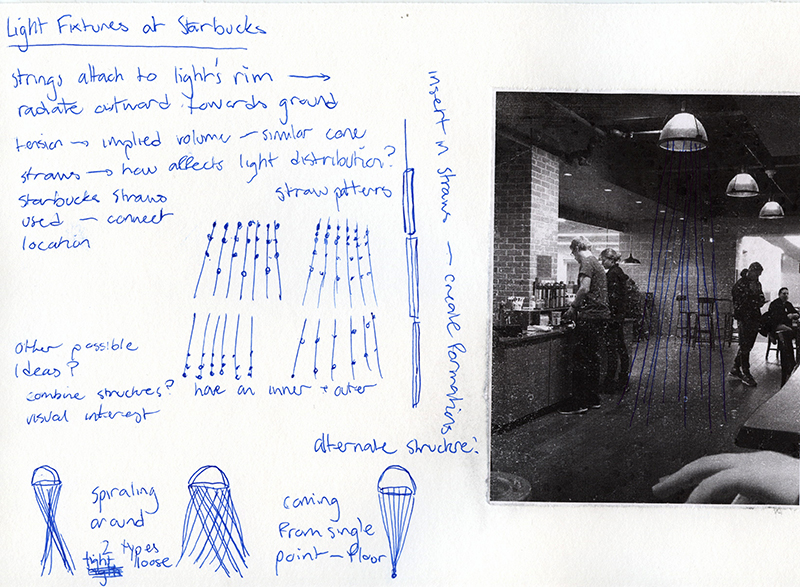 Light Fixtures at Starbucks
strings attach to light's rim →
radiate outward towards ground
tension → implied volume – similar cone
straws → how affects light distribution?
starbucks straws
used – connect
location
straw patterns
insert in straws – create formations
other possible
ideas?
combine structures? have an inner + outer
visual interest
alternate structure:
spiraling
around
2 types
tight loose
coming
from single
point – floor